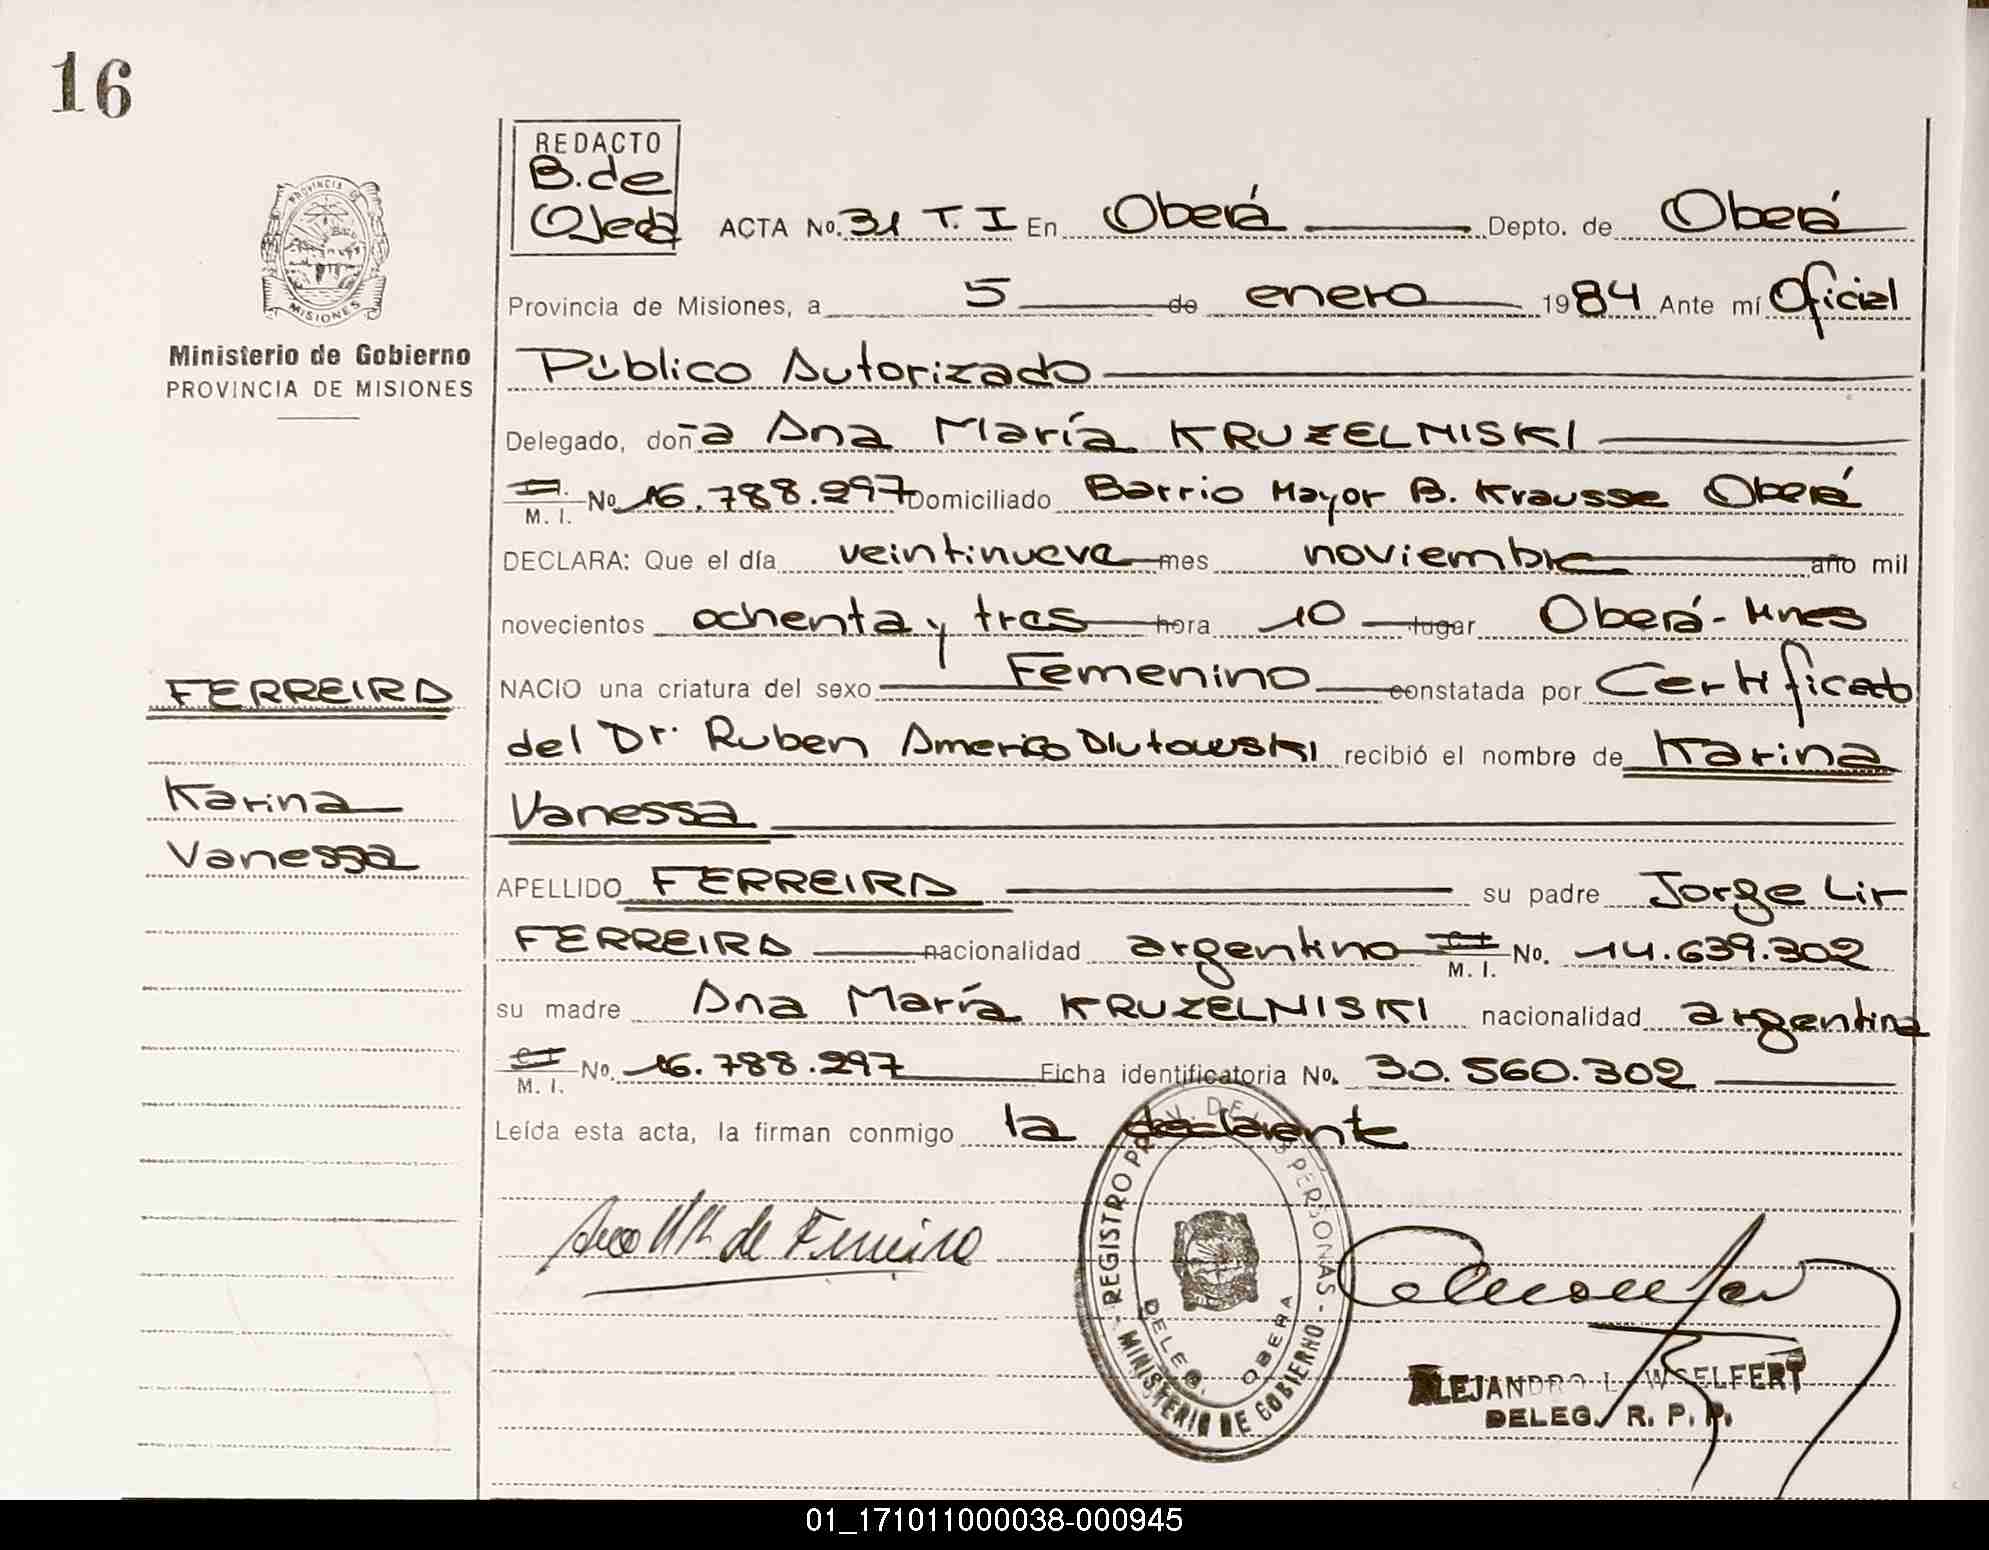 16
REDACTO
B. de
Ojeda
ACTA No. 31 T. I En Oberá Depto. de Oberá
Provincia de Misiones, a 5 de enero 1984 Ante mí Oficial
Público Autorizado
Delegado, doña Ana María KRUZELNISKI
M. I. No 16.788.297 Domiciliado Barrio Mayor B. Krausse Oberá
DECLARA: Que el día veintinueve mes noviembre año mil
novecientos ochenta y tres hora 10 lugar Oberá - Mnes
NACIO una criatura del sexo Femenino constatada por Certificado
del Dr. Ruben Americo Dlutowski recibió el nombre de Karina
Vanessa
APELLIDO FERREIRA su padre Jorge Lir
FERREIRA nacionalidad argentino C.I. M. I. No. 14.639.302
su madre Ana María KRUZELNISKI nacionalidad argentina
C.I. M. I. No. 16.788.297 Ficha identificatoria No. 30.560.302
Leída esta acta, la firman conmigo la declarante
PROVINCIA DE
MISIONES
Ministerio de Gobierno
PROVINCIA DE MISIONES
FERREIRA
Karina
Vanessa
Ana Mª de Ferreira
REGISTRO PROV. DE LAS PERSONAS - MINISTERIO DE GOBIERNO -
DELEG. OBERA
ALEJANDRO L. WSELFERT
DELEG. R. P. P.
01_171011000038-000945